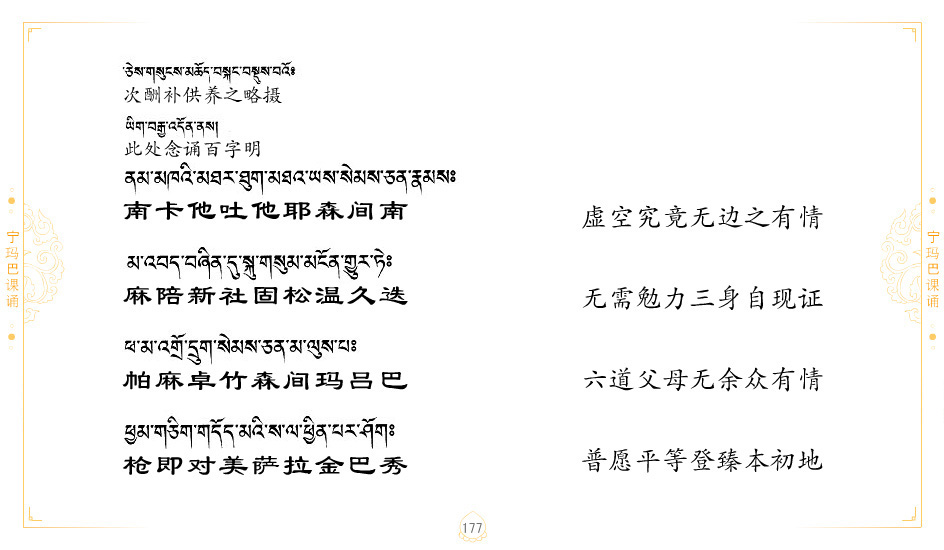 ཅེས་གསུངས་མཆོད་བསྐང་བསྡུས་བའོ༔
次酬补供养之略摄
ཡིག་བརྒྱ་འདོན་ནས།
此处念诵百字明
ནམ་མཁའི་མཐར་ཐུག་མཐའ་ཡས་སེམས་ཅན་རྣམས༔
南卡他吐他耶森间南
虚空究竟无边之有情
མ་འབད་བཞིན་དུ་སྐུ་གསུམ་མངོན་གྱུར་ཏེ༔
麻陪新社固松温久迭
无需勉力三身自现证
ཕ་མ་འགྲོ་དྲུག་སེམས་ཅན་མ་ལུས་པ༔
帕麻卓竹森间玛吕巴
六道父母无余众有情
ཕྱམ་གཅིག་གདོད་མའི་ས་ལ་ཕྱིན་པར་ཤོག༔
枪即对美萨拉金巴秀
普愿平等登臻本初地
宁玛巴课诵
宁玛巴课诵
177